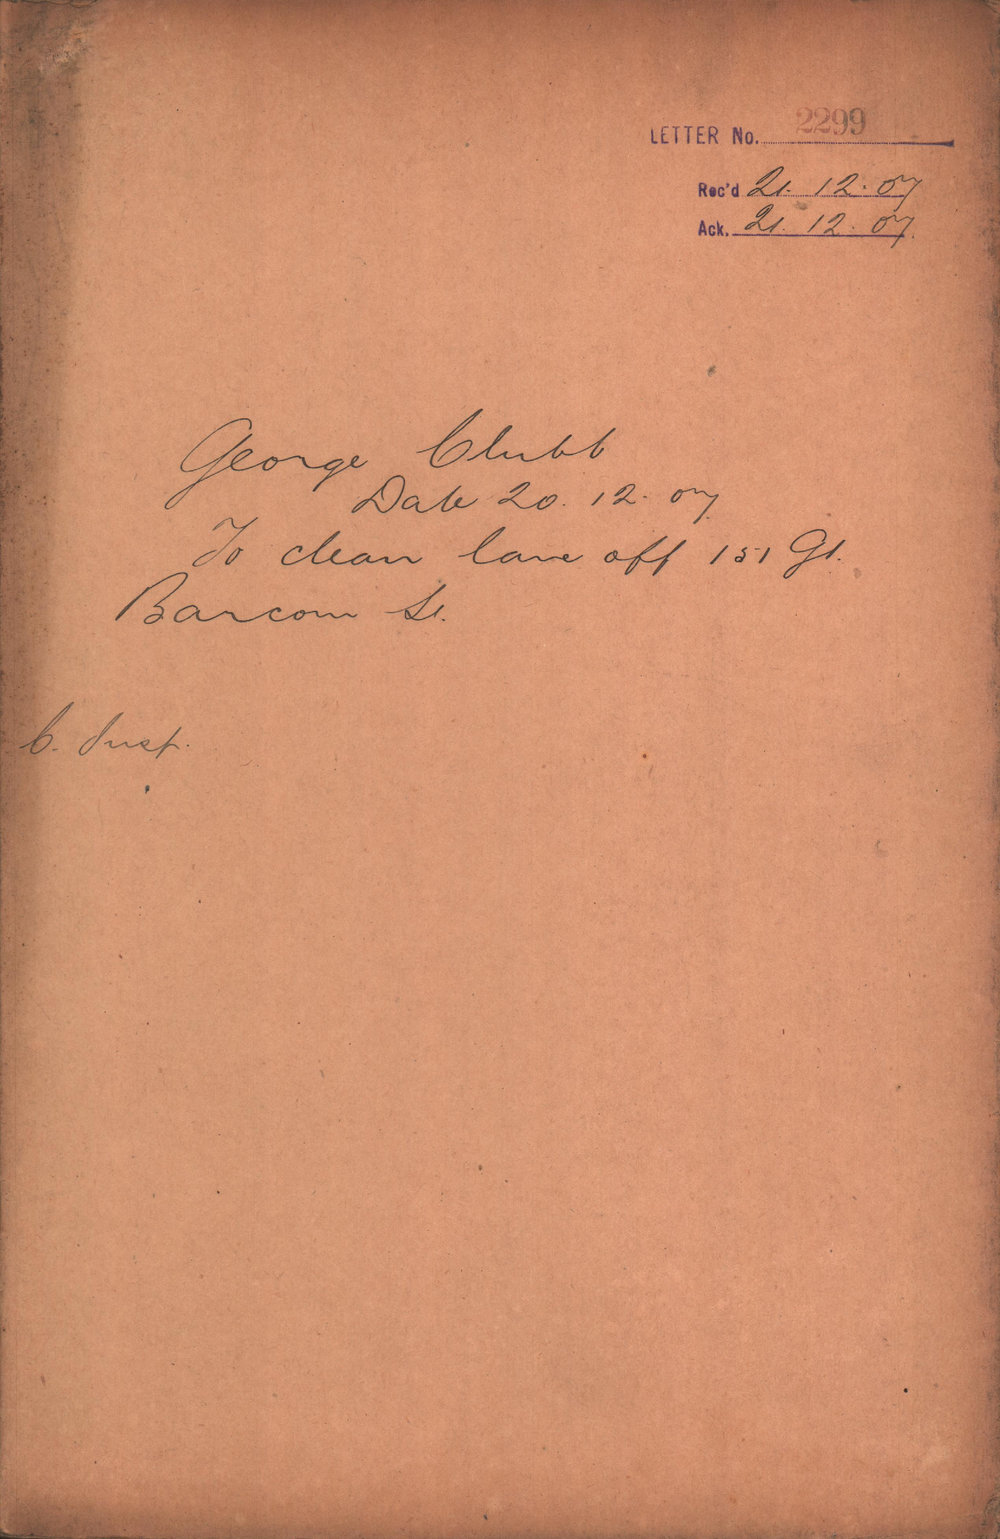 LETTER No. 2299
Rec'd 21. 12. 07
Ack. 21. 12. 07.
George Clubb
Date 20. 12. 07
To clean lane off 151 Gt.
Barcom St.
C. Insp.